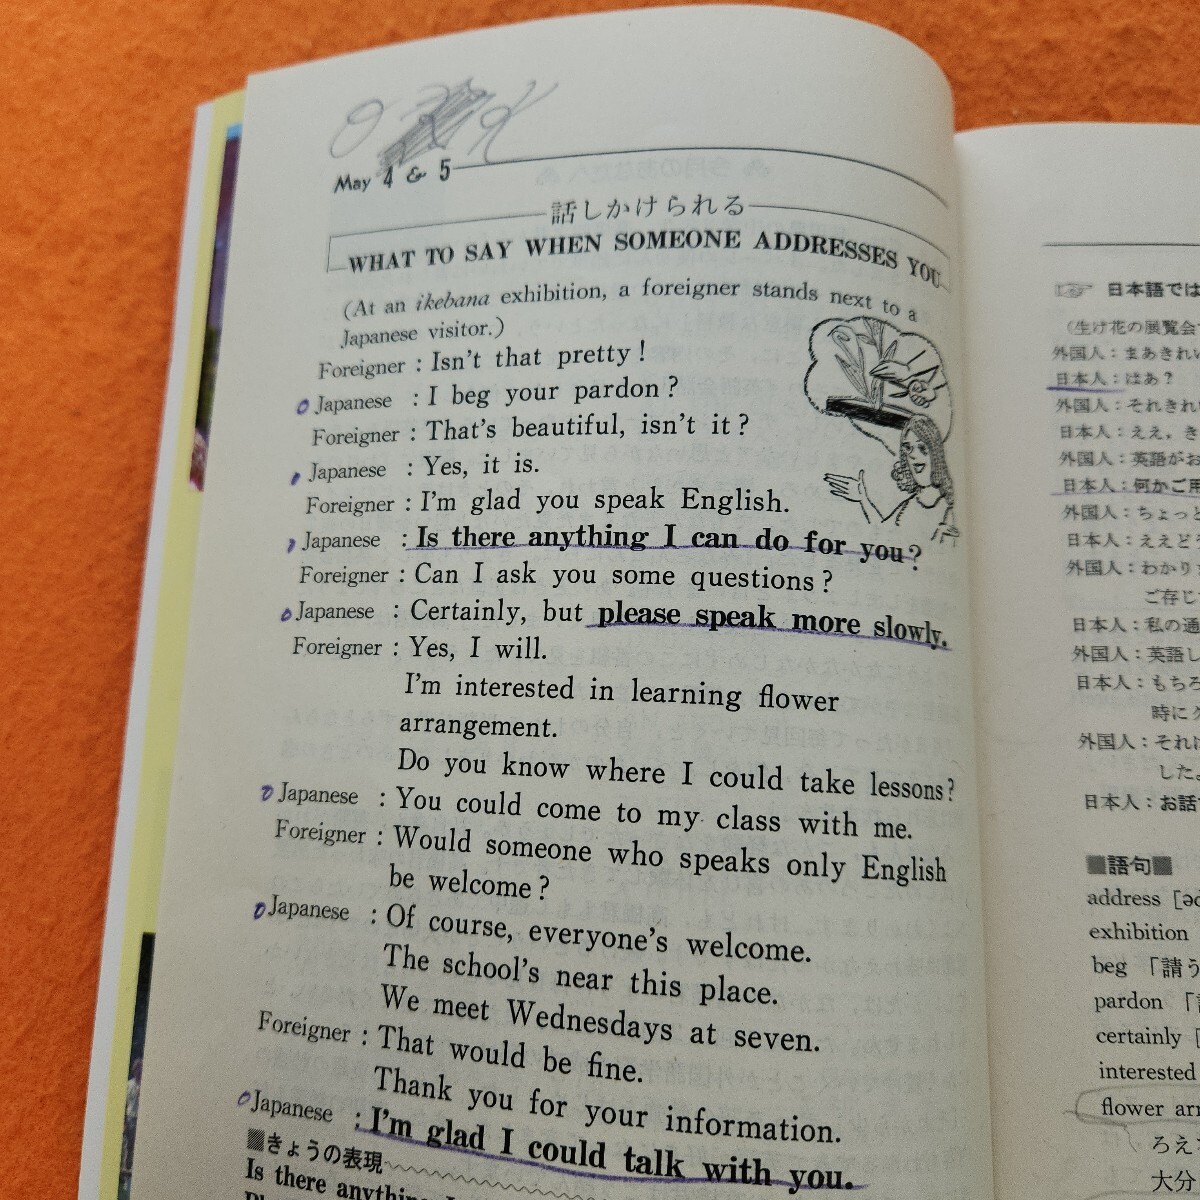 May 4 & 5
話しかけられる
WHAT TO SAY WHEN SOMEONE ADDRESSES YOU
(At an ikebana exhibition, a foreigner stands next to a
Japanese visitor.)
Foreigner : Isn't that pretty!
Japanese : I beg your pardon?
Foreigner : That's beautiful, isn't it?
Japanese : Yes, it is.
Foreigner : I'm glad you speak English.
Japanese : Is there anything I can do for you?
Foreigner : Can I ask you some questions?
Japanese : Certainly, but please speak more slowly.
Foreigner : Yes, I will.
I'm interested in learning flower
arrangement.
Do you know where I could take lessons?
Japanese : You could come to my class with me.
Foreigner : Would someone who speaks only English
be welcome?
Japanese : Of course, everyone's welcome.
The school's near this place.
We meet Wednesdays at seven.
Foreigner : That would be fine.
Thank you for your information.
Japanese : I'm glad I could talk with you.
■きょうの表現
Is there anything
☞ 日本語では
(生け花の展覧会
外国人：まあきれい
日本人：はあ？
外国人：それきれい
日本人：ええ，き
外国人：英語がお
日本人：何かご用
外国人：ちょっと
日本人：ええどう
外国人：わかりま
ご存じ
日本人：私の通
外国人：英語し
日本人：もちろ
時にク
外国人：それは
した
日本人：お話
■語句■
address [əd
exhibition
beg 「請う
pardon 「
certainly [
interested
flower arr
ろえ
大分